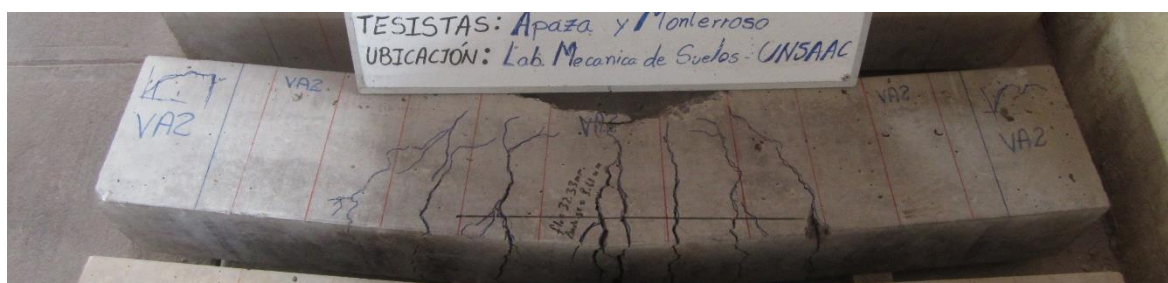 TESISTAS: Apaza y Monterroso
UBICACIÓN: Lab. Mecanica de Suelos - UNSAAC
VA2
VA2
VA2
VA2
VA2